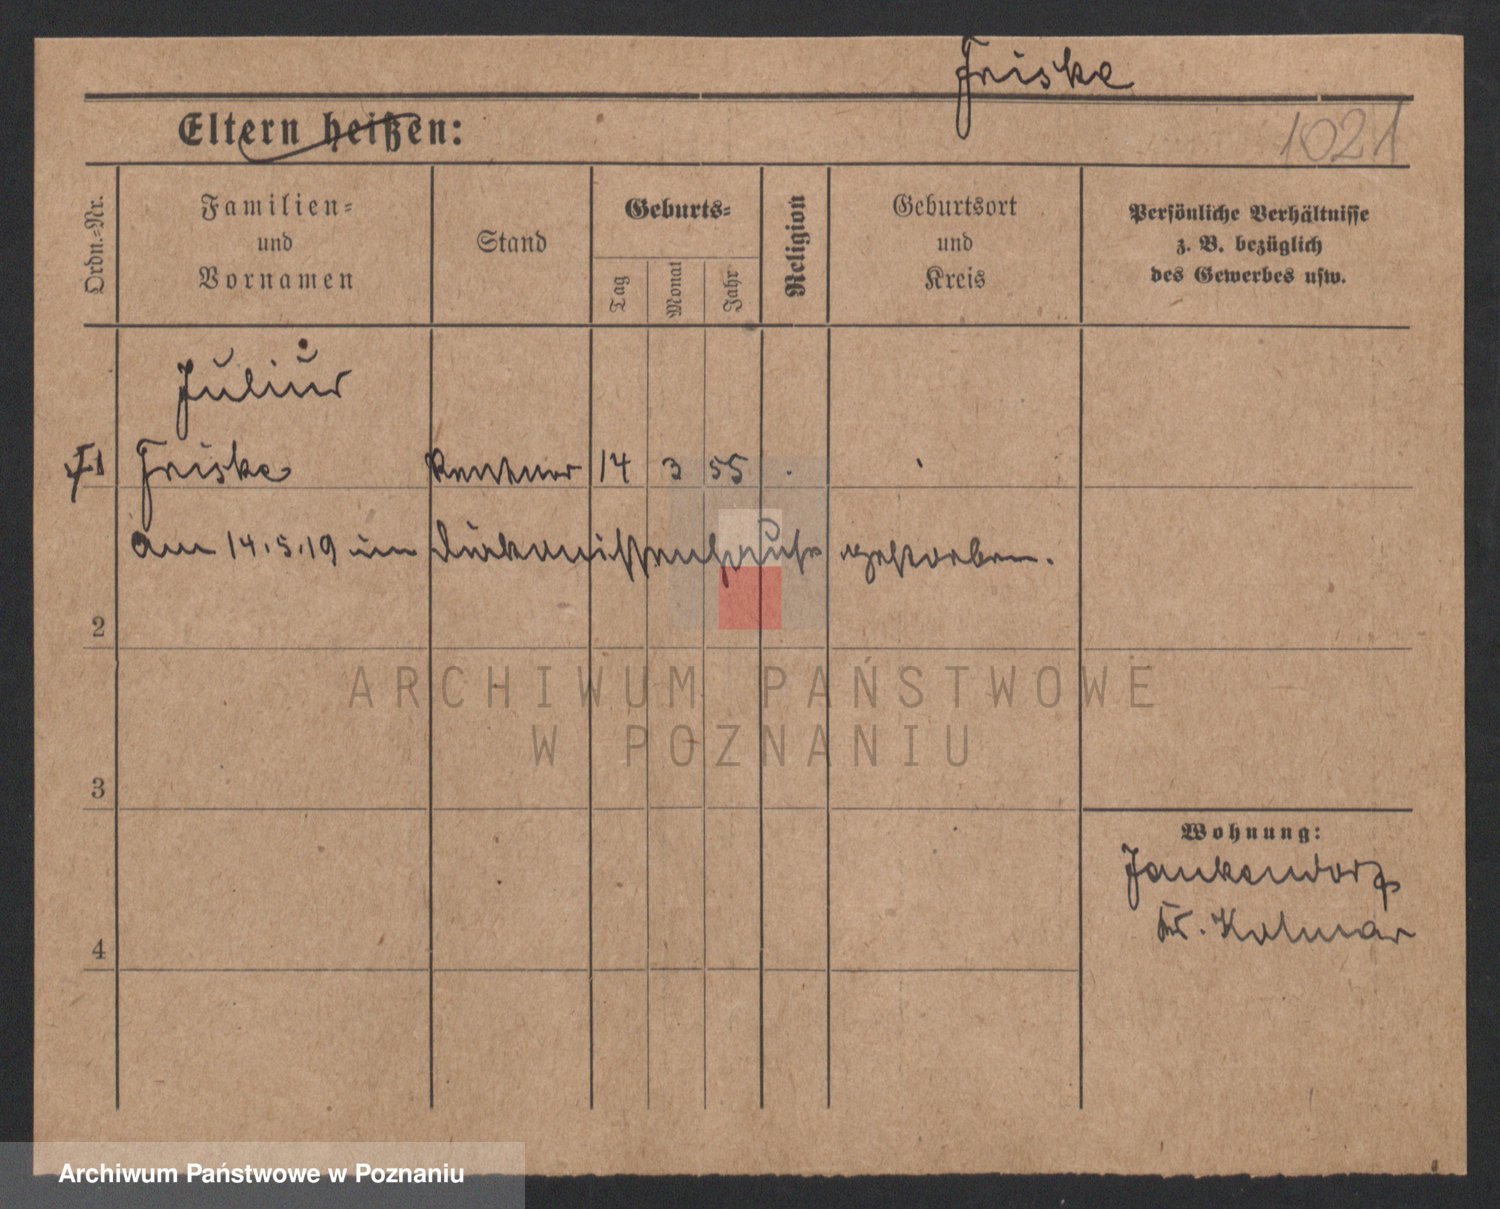 Friske
Eltern heißen:
1021
Ordn.-Nr.
Familien-
und
Vornamen
Stand
Geburts-
Tag
Monat
Jahr
Religion
Geburtsort
und
Kreis
Persönliche Verhältnisse
z. B. bezüglich
des Gewerbes usw.
Julius
1 Friske Rentner 14 3 55
am 14.5.19 im Diakonissenhause gestorben.
2
ARCHIWUM PAŃSTWOWE
W POZNANIU
3
Wohnung:
Jankendorf
Kr. Kolmar
4
Archiwum Państwowe w Poznaniu